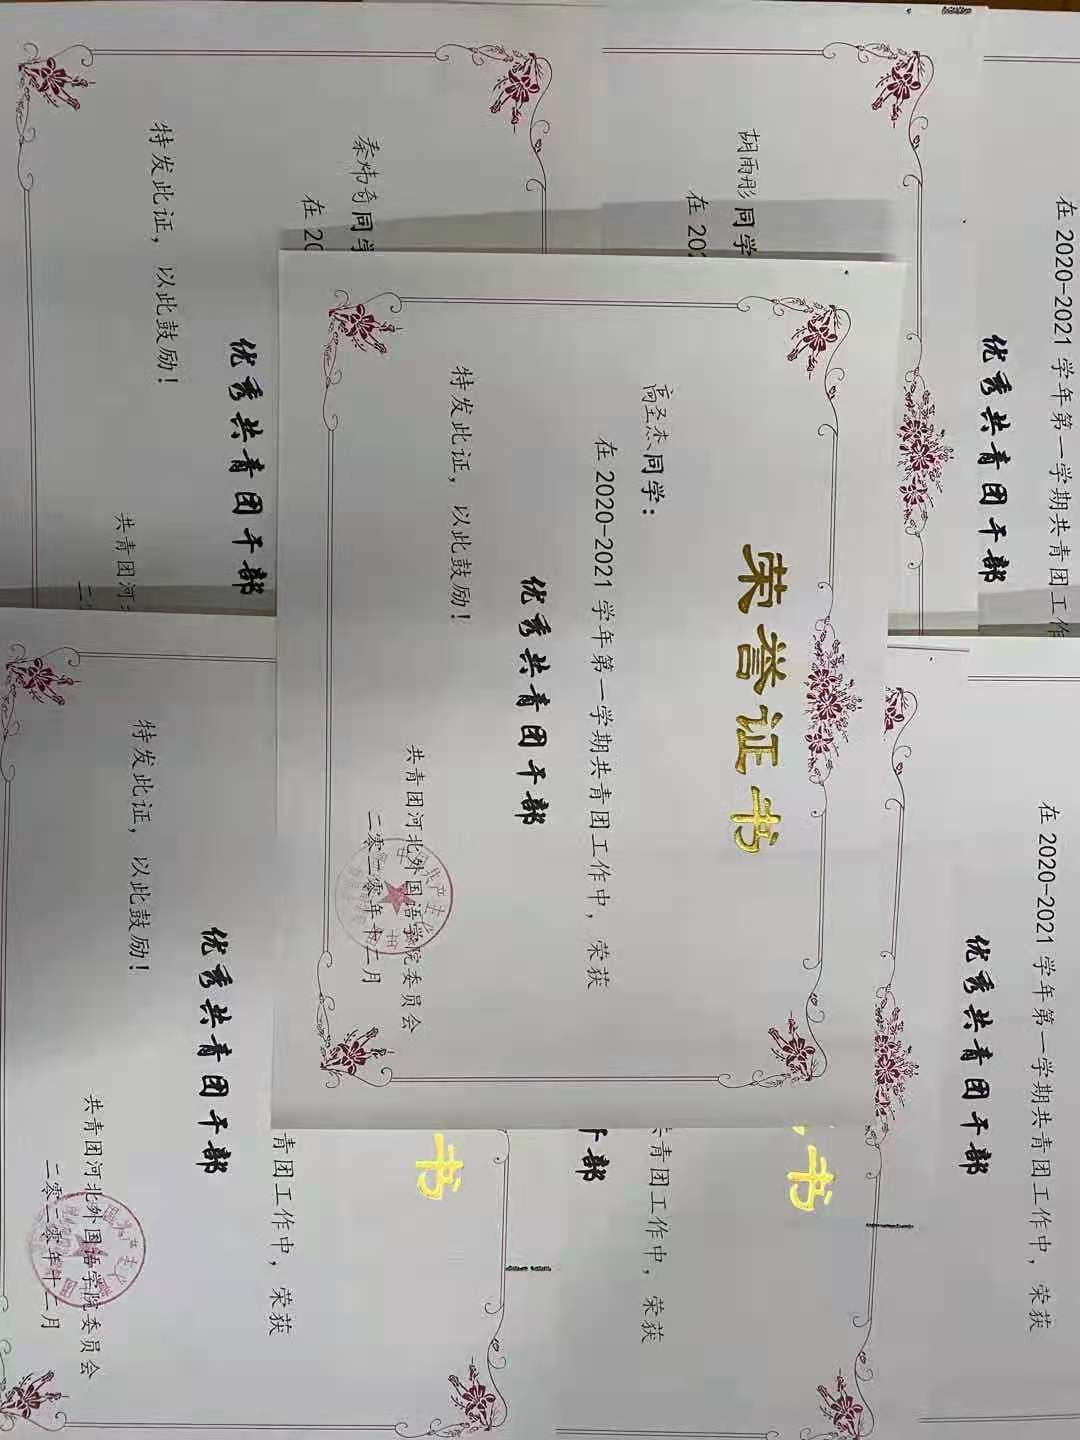 荣誉证书
高圣杰同学：
在2020-2021学年第一学期共青团工作中，荣获
优秀共青团干部
特发此证，以此鼓励！
共青团河北外国语学院委员会
二零二零年十二月
秦炜奇同学
在20
优秀共青团干部
特发此证，以此鼓励！
共青团河北
二零
胡雨彤同学
在202
在2020-2021学年第一学期共青团工作
优秀共青团干部
书
青团工作中，荣获
优秀共青团干部
特发此证，以此鼓励！
共青团河北外国语学院委员会
二零二零年十二月
书
青团工作中，荣获
干部
在2020-2021学年第一学期共青团工作中，荣获
优秀共青团干部